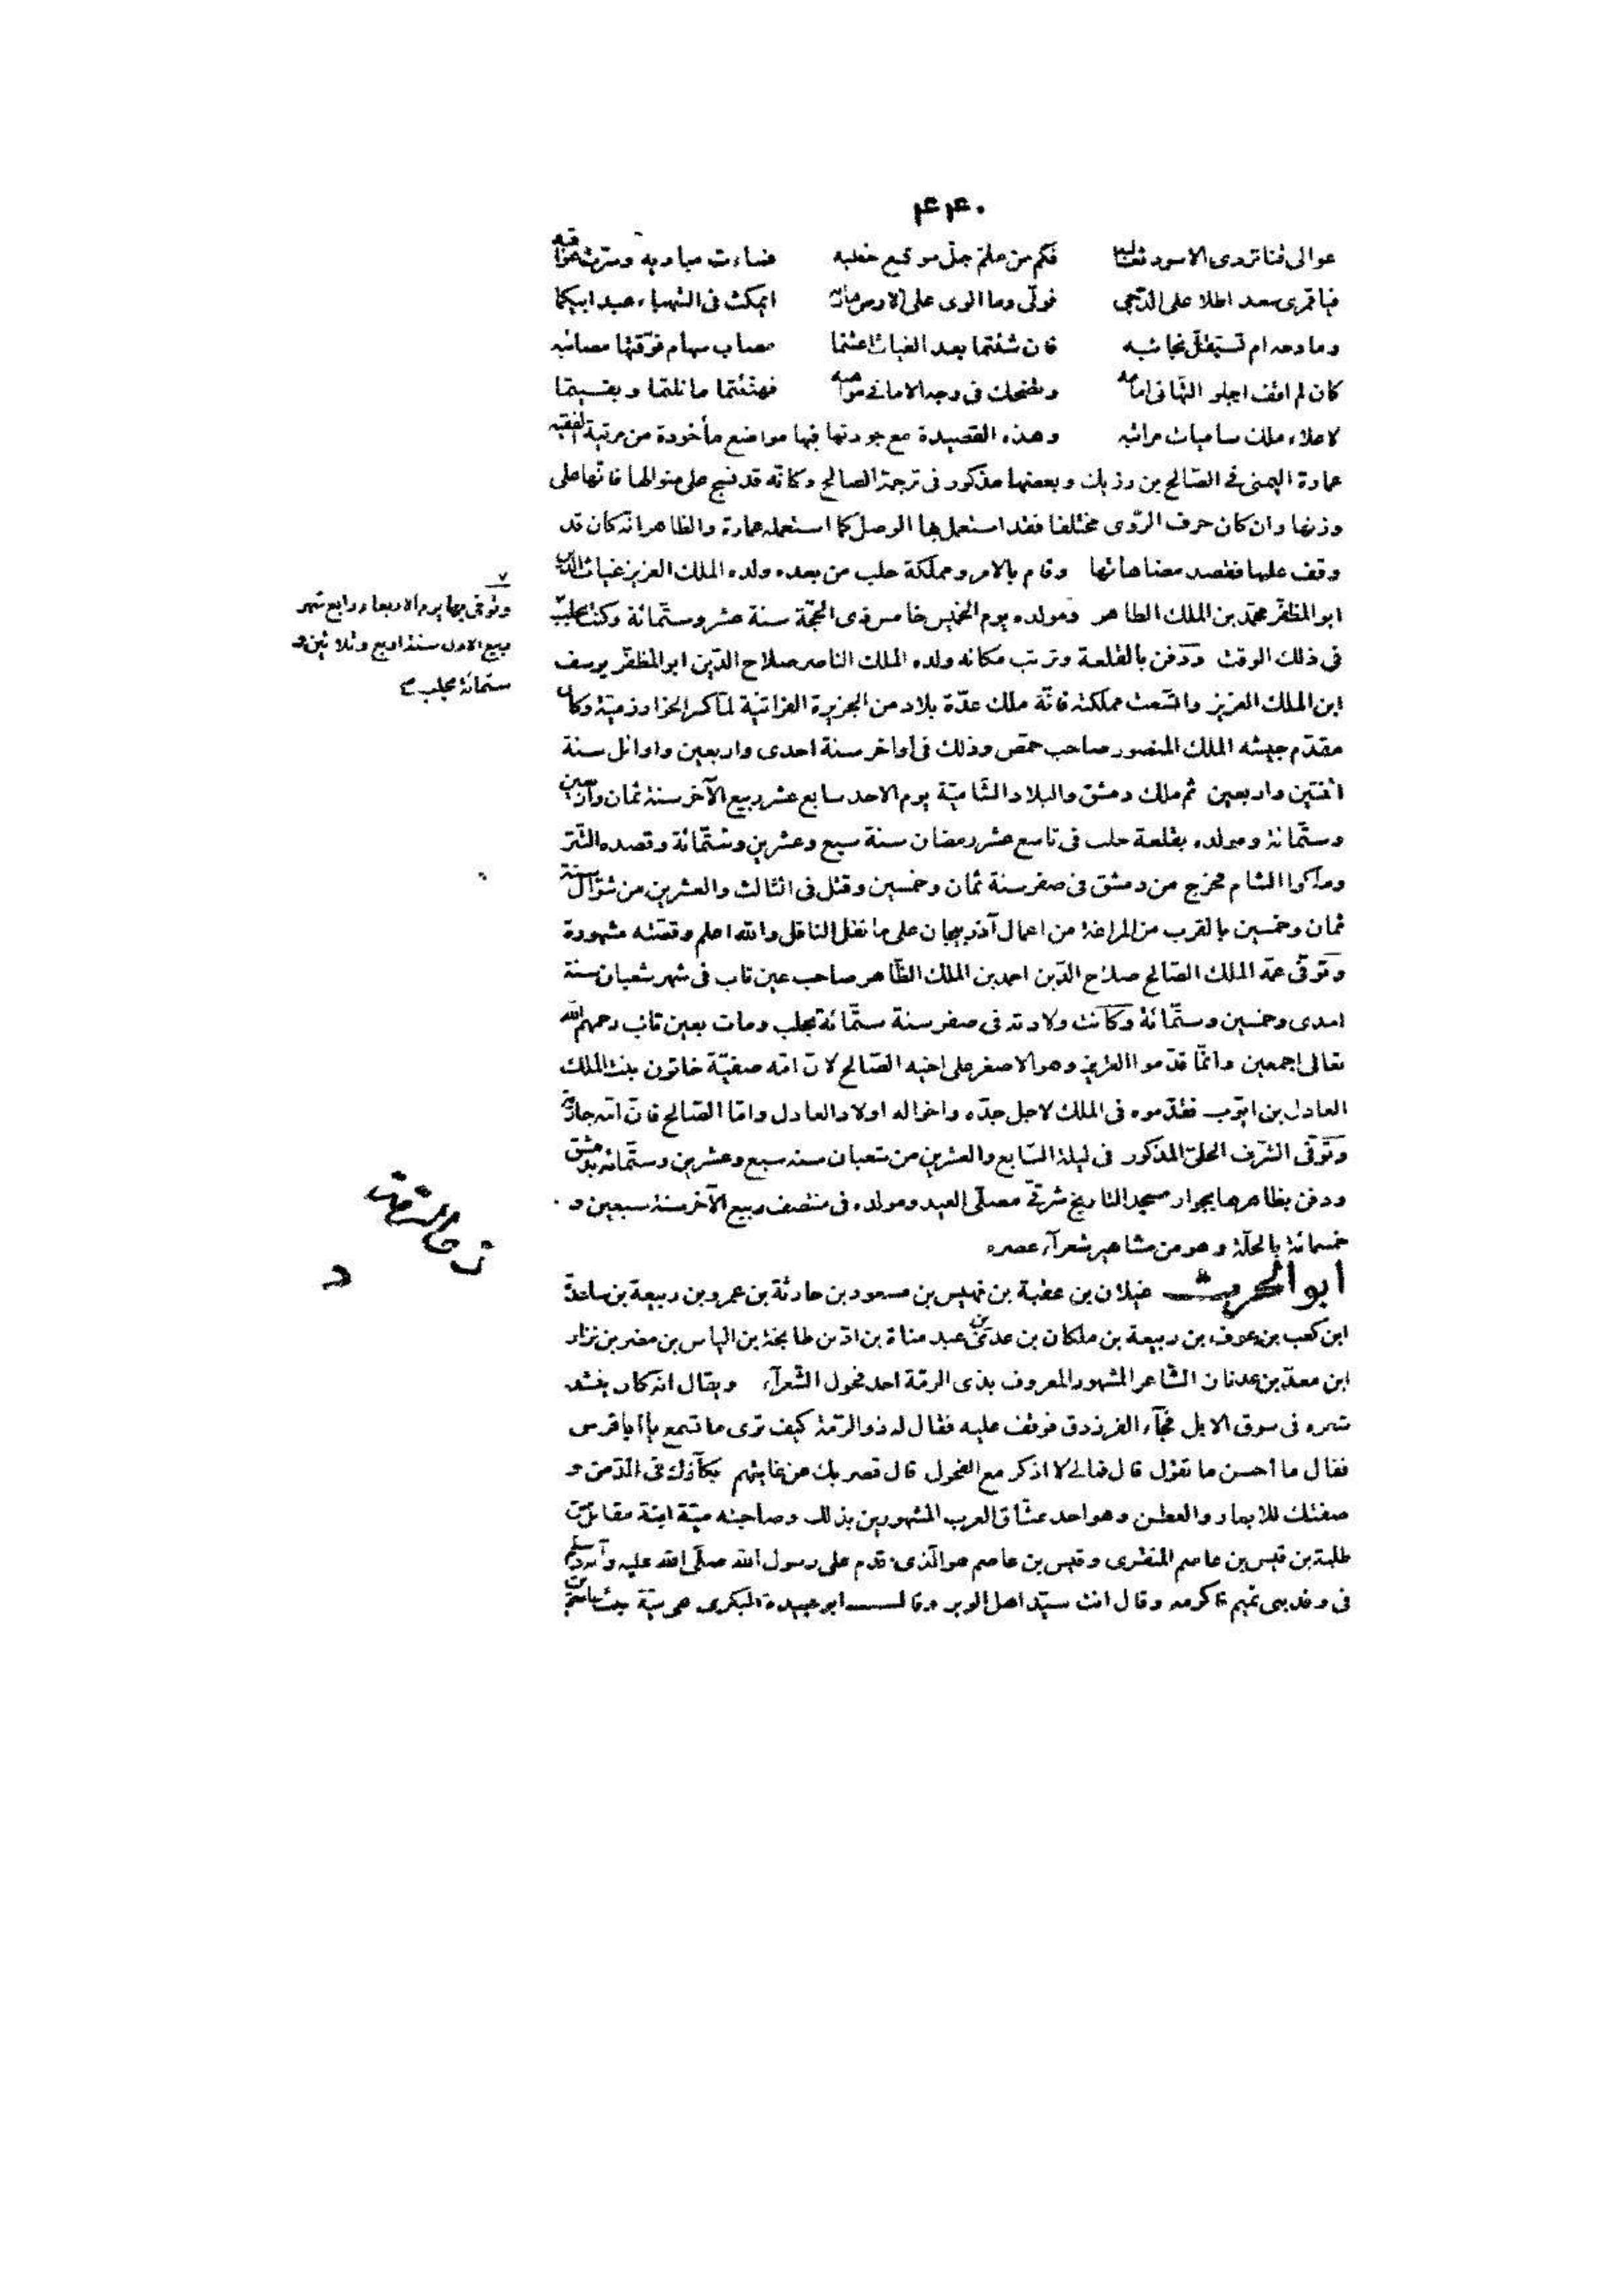 ۴۴۰
عوالى قنا تردى الاسود ثعالبه فكم من ملم جل موقع خطبه فساءت مباديه وسرت عواقبه
فيا قمرى سعد اطلا على الدجى فولى وما الوى على الارض هاربه ايمكث فى الشهباء عبد ابيكما
وما دحه ام تستقل نجائبه فان شئتما بعد الغياث اغثتما مصاب سهام فوقتها مصائبه
كان لم اقف اجلو التهانى امامه وتضحك فى وجه الامانى مواهبه فهنئتما ما نلتما وبقيتما
لاعلاء ملك ساميات مراتبه وهذه القصيدة مع جودتها فيها مواضع مأخوذة من مرثية الفقيه
عمارة اليمنى فى الصّالح بن رزيك وبعضها مذكور فى ترجمة الصالح وكانّه قد نسج على منوالها فانّها على
وزنها وان كان حرف الرّوى مختلفا فقد استعمل بها الوصل كما استعمله عمارة والظاهر انّه كان قد
وقف عليها فقصد مضاهاتها وقام بالامر ومملكة حلب من بعده ولده الملك العزيز غياث الدين
ابو المظفّر محمّد بن الملك الظاهر ومولده يوم الخميس خامس ذى الحجّة سنة عشر وستّمائة وكنت بحلب
فى ذلك الوقت ودفن بالقلعة وترتب مكانه ولده الملك الناصر صلاح الدّين ابو المظفّر يوسف
ابن الملك العزيز واتّسعت مملكته فانّه ملك عدّة بلاد من الجزيرة الفراتيّة لمّا كسر الخوارزميّة وكان
مقدّم جيشه الملك المنصور صاحب حمص وذلك فى أواخر سنة احدى واربعين واوائل سنة
اثنتين واربعين ثم ملك دمشق والبلاد الشّاميّة يوم الاحد سابع عشر ربيع الآخر سنة ثمان واربعين
وستّمائة ومولده بقلعة حلب فى تاسع عشر رمضان سنة سبع وعشرين وستّمائة وقصده التّتر
وملكوا الشام فخرج من دمشق فى صفر سنة ثمان وخمسين وقتل فى الثالث والعشرين من شوّال سنة
ثمان وخمسين بالقرب من المراغة من اعمال آذربيجان على ما نقل الناقل والله اعلم وقصّته مشهورة
وتوفّى عمّه الملك الصّالح صلاح الدّين احمد بن الملك الظّاهر صاحب عين تاب فى شهر شعبان سنة
احدى وخمسين وستّمائة وكانت ولادته فى صفر سنة ستّمائة بحلب ومات بعين تاب رحمهم الله
تعالى اجمعين وانّما قدّموا العزيز وهو الاصغر على اخيه الصّالح لانّ امّه صفيّة خاتون بنت الملك
العادل بن ايّوب فقدّموه فى الملك لاجل جدّه واخواله اولاد العادل وامّا الصّالح فانّ امّه جارية
وتوّفّى الشّرف الحلّى المذكور فى ليلة السّابع والعشرين من شعبان سنة سبع وعشرين وستّمائة بدمشق
ودفن بظاهرها بجوار مسجد التاريخ شرقى مصلّى العيد ومولده فى منتصف ربيع الآخر سنة سبعين و
خمسمائة بالحلّة وهو من مشاهير شعرآء عصره
وتوفى بها يوم الاربعاء رابع شهر
ربيع الاول سنة اربع وثلاثين و
ستمائة بحلب
ابو الحرث غيلان بن عقبة بن نهيس بن مسعود بن حارثة بن عمرو بن ربيعة بن ساعدة
ابن كعب بن عوف بن ربيعة بن ملكان بن عدىّ بن عبد مناة بن ادّ بن طابخة بن الياس بن مضر بن نزار
ابن معدّ بن عدنان الشّاعر المشهور المعروف بذى الرمّة احد فحول الشّعرآء ويقال انه كان ينشد
شعره فى سوق الابل فجآء الفرزدق فوقف عليه فقال له ذو الرّمّة كيف ترى ما تسمع يا ابا فرس
فقال ما احسن ما تقول قال فما لى لا اذكر مع الفحول قال قصر بك عن غايتهم بكآؤك فى الدّمن و
صفتك للابعار والعطن وهو احد عشّاق العرب المشهورين بذلك وصاحبته ميّة ابنة مقاتل بن
طلبة بن قيس بن عاصم المنقرى وقيس بن عاصم هو الّذى قدم على رسول الله صلّى الله عليه وآله وسلم
فى وفد بنى تميم فاكرمه وقال انت سيّد اهل الوبر وقال ابو عبيدة البكرى هى ميّة بنت عاصم